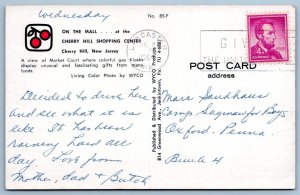 Wednesday
No. 85-F
ON THE MALL . . . at the
CHERRY HILL SHOPPING CENTER
Cherry Hill, New Jersey
A view of Market Court where colorful gay Kiosks
display unusual and fascinating gifts from many
lands.
Living Color Photo by WYCO
Decided to drive here
and see what it is
like. It has been
raining hard all
day. Love from
Mother, dad & Butch
Published & Distributed by WYCO
814 Greenwood Ave., Jenkintown, Pa. TU 4-0896
GIV
POST CARD
address
Marc Sandhaus
Camp Saginaw for Boys
Oxford, Penna.
Bunk 4